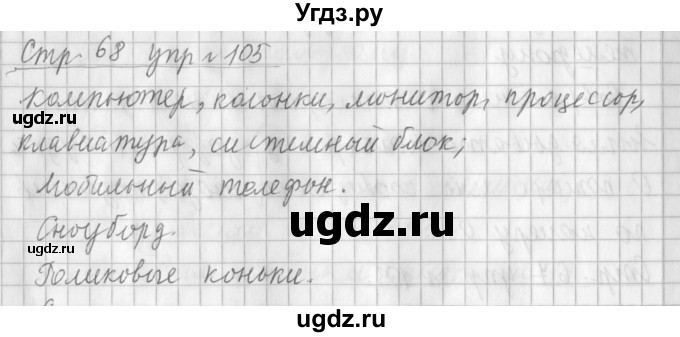 Угдз.ру
Стр 68 упр № 105
Компьютер, колонки, монитор, процессор,
клавиатура, системный блок;
Мобильный телефон.
Сноуборд.
Роликовые коньки.
ugdz.ru
ugdz.ru
ugdz.ru
ugdz.ru
ugdz.ru
ugdz.ru
ugdz.ru